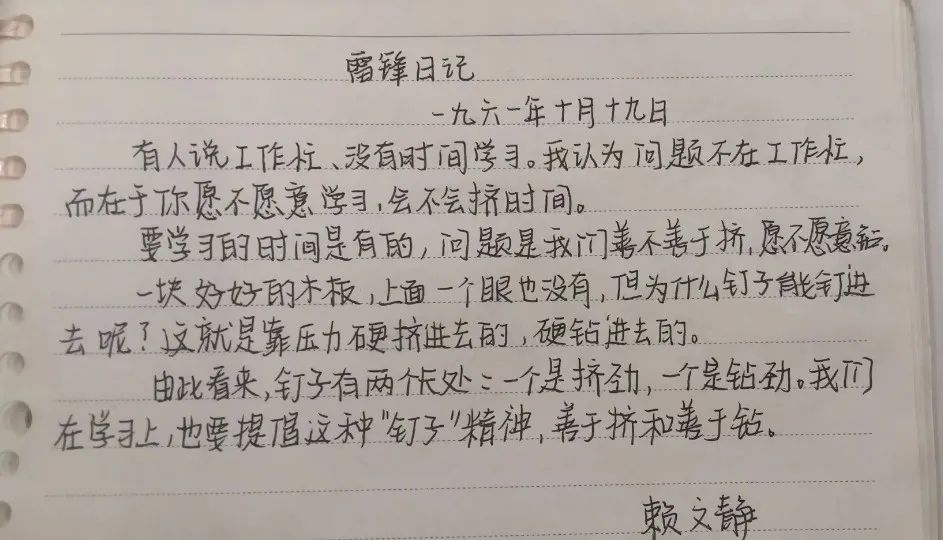 雷锋日记
一九六一年十月十九日
有人说工作忙、没有时间学习。我认为问题不在工作忙，
而在于你愿不愿意学习，会不会挤时间。
要学习的时间是有的，问题是我们善不善于挤，愿不愿意钻。
一块好好的木板，上面一个眼也没有，但为什么钉子能钉进
去呢？这就是靠压力硬挤进去的，硬钻进去的。
由此看来，钉子有两个长处：一个是挤劲，一个是钻劲。我们
在学习上，也要提倡这种"钉子"精神，善于挤和善于钻。
赖文静